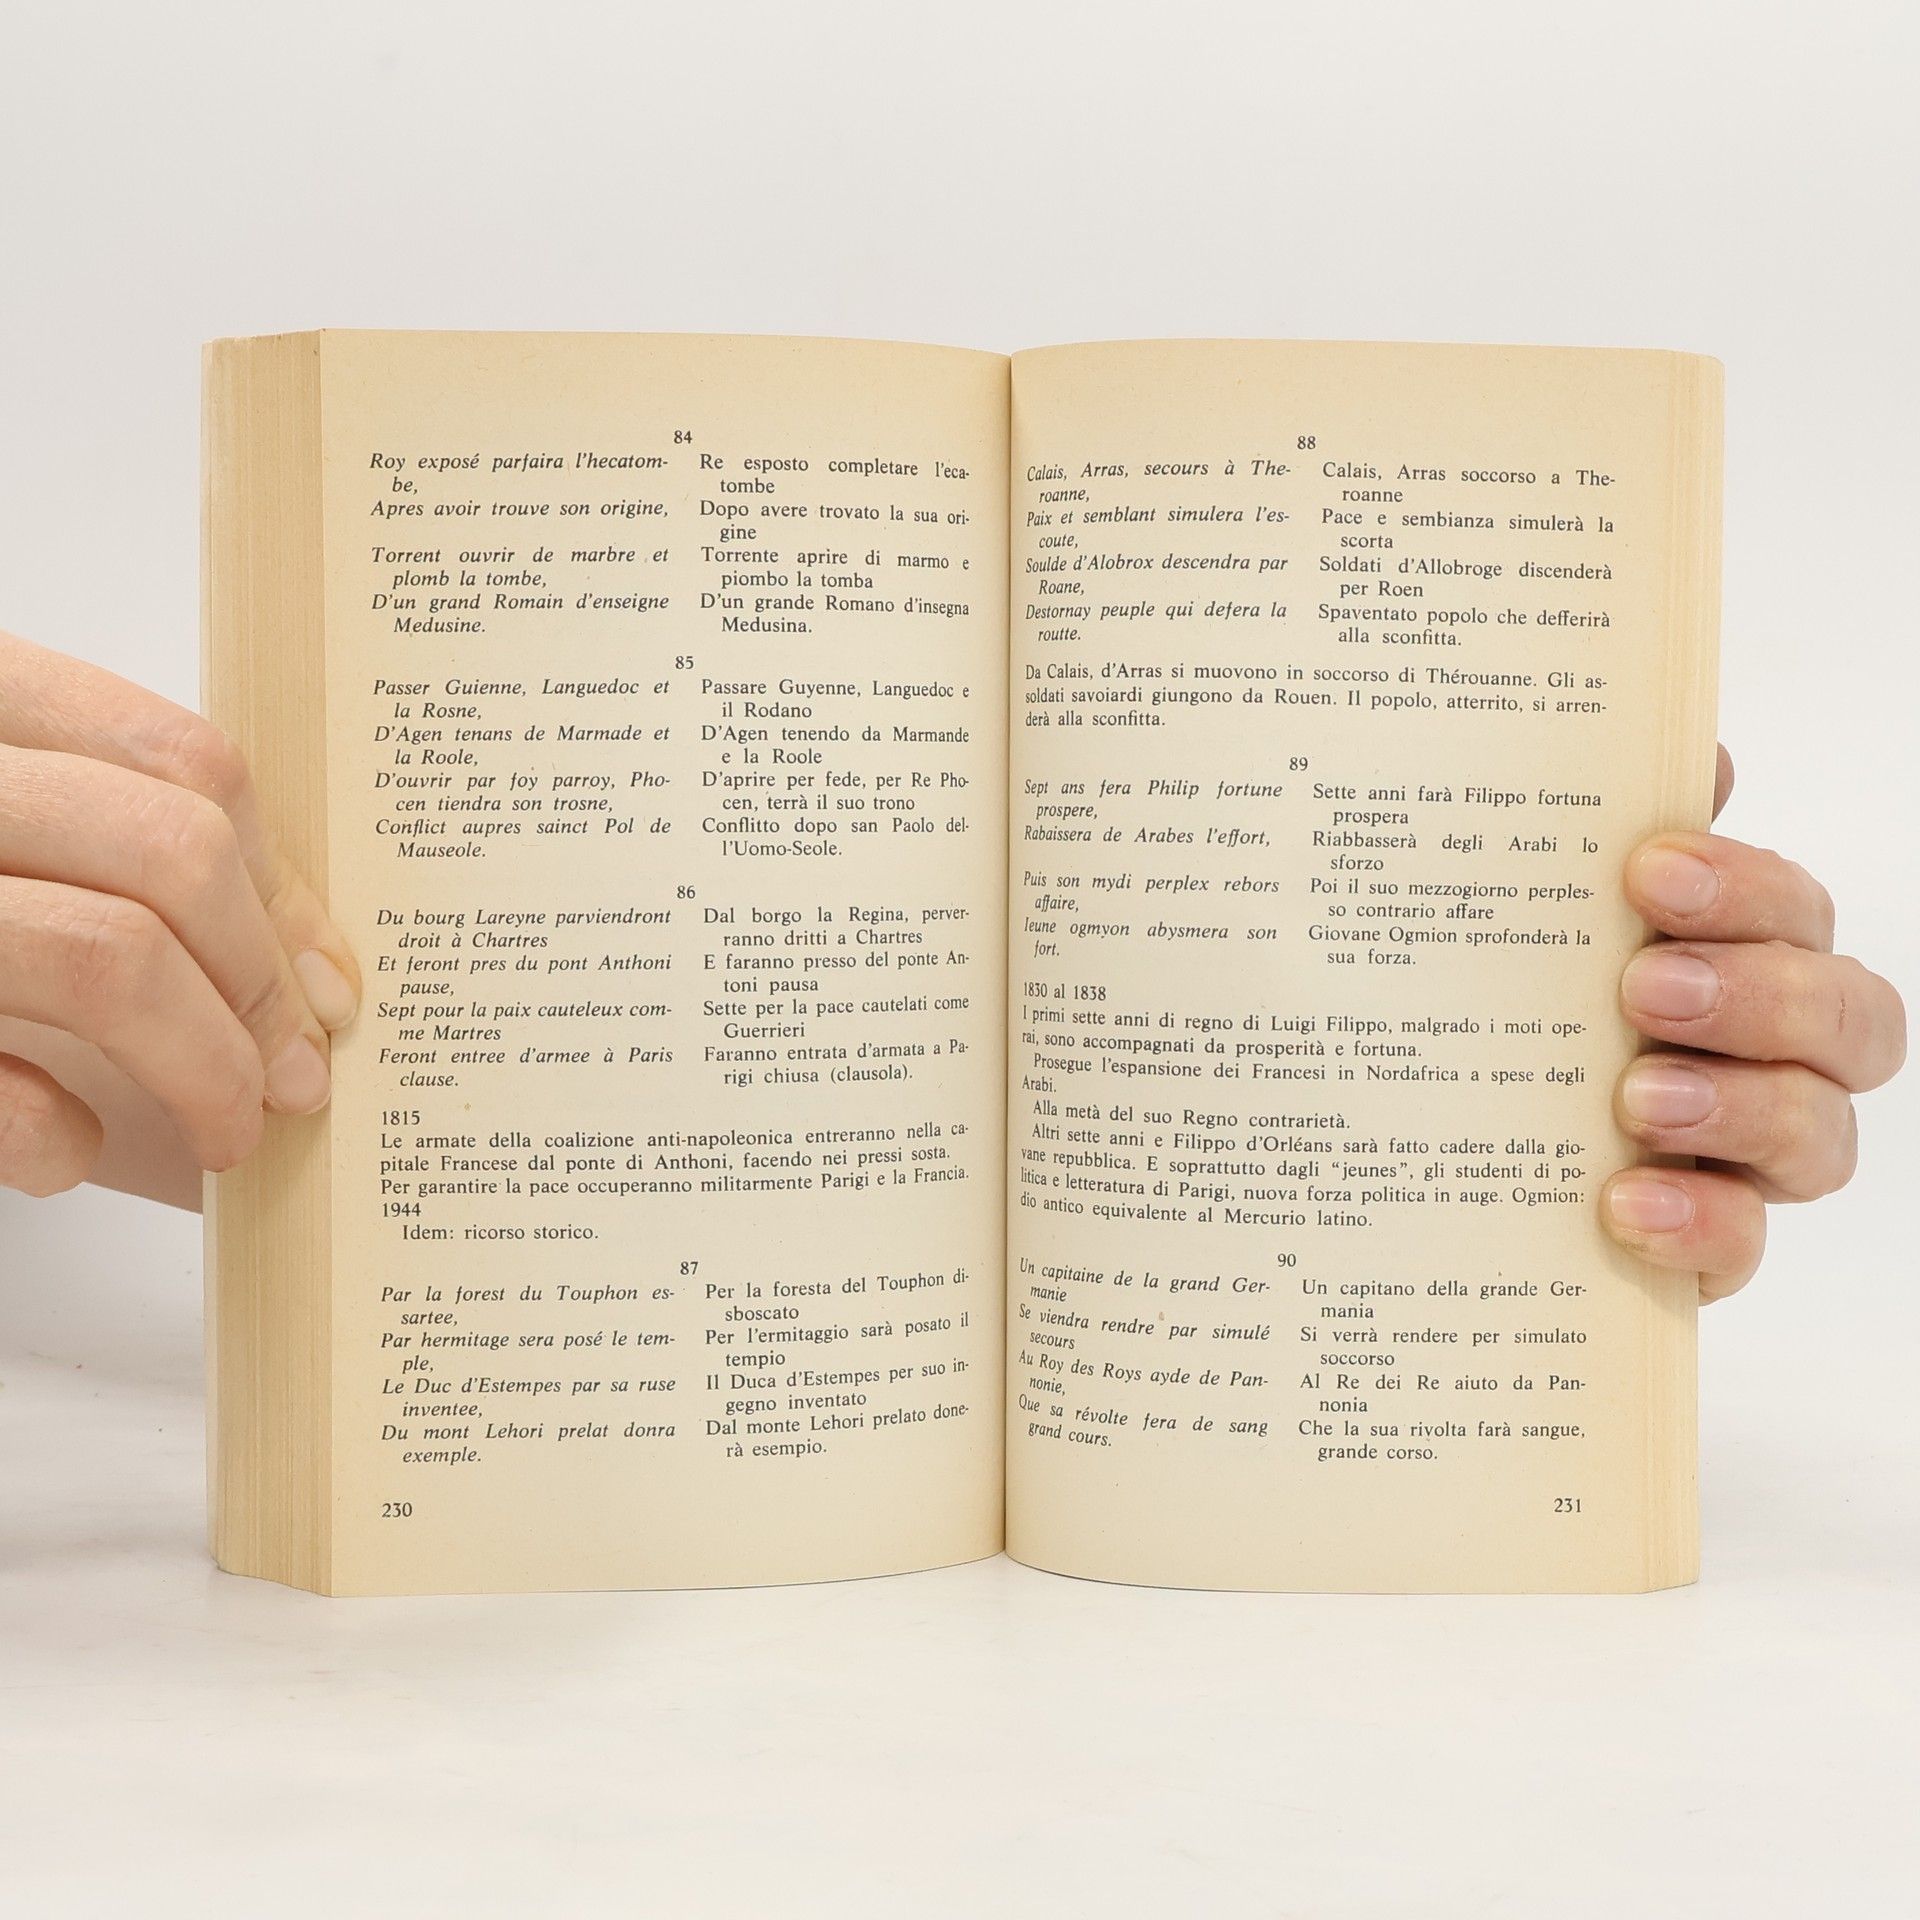 84
Roy exposé parfaira l'hecatom-
be,
Apres avoir trouve son origine,
Torrent ouvrir de marbre et
plomb la tombe,
D'un grand Romain d'enseigne
Medusine.
Re esposto completare l'eca-
tombe
Dopo avere trovato la sua ori-
gine
Torrente aprire di marmo e
piombo la tomba
D'un grande Romano d'insegna
Medusina.
85
Passer Guienne, Languedoc et
la Rosne,
D'Agen tenans de Marmade et
la Roole,
D'ouvrir par foy parroy, Pho-
cen tiendra son trosne,
Conflict aupres sainct Pol de
Mauseole.
Passare Guyenne, Languedoc e
il Rodano
D'Agen tenendo da Marmande
e la Roole
D'aprire per fede, per Re Pho-
cen, terrà il suo trono
Conflitto dopo san Paolo del-
l'Uomo-Seole.
86
Du bourg Lareyne parviendront
droit à Chartres
Et feront pres du pont Anthoni
pause,
Sept pour la paix cauteleux com-
me Martres
Feront entree d'armee à Paris
clause.
Dal borgo la Regina, perver-
ranno dritti a Chartres
E faranno presso del ponte An-
toni pausa
Sette per la pace cautelati come
Guerrieri
Faranno entrata d'armata a Pa-
rigi chiusa (clausola).
1815
Le armate della coalizione anti-napoleonica entreranno nella ca-
pitale Francese dal ponte di Anthoni, facendo nei pressi sosta.
Per garantire la pace occuperanno militarmente Parigi e la Francia.
1944
Idem: ricorso storico.
87
Par la forest du Touphon es-
sartee,
Par hermitage sera posé le tem-
ple,
Le Duc d'Estempes par sa ruse
inventee,
Du mont Lehori prelat donra
exemple.
Per la foresta del Touphon di-
sboscato
Per l'ermitaggio sarà posato il
tempio
Il Duca d'Estempes per suo in-
gegno inventato
Dal monte Lehori prelato done-
rà esempio.
230
88
Calais, Arras, secours à The-
roanne,
Paix et semblant simulera l'es-
coute,
Soulde d'Alobrox descendra par
Roane,
Destornay peuple qui defera la
routte.
Calais, Arras soccorso a The-
roanne
Pace e sembianza simulerà la
scorta
Soldati d'Allobroge discenderà
per Roen
Spaventato popolo che defferirà
alla sconfitta.
Da Calais, d'Arras si muovono in soccorso di Thérouanne. Gli as-
soldati savoiardi giungono da Rouen. Il popolo, atterrito, si arren-
derà alla sconfitta.
89
Sept ans fera Philip fortune
prospere,
Rabaissera de Arabes l'effort,
Puis son mydi perplex rebors
affaire,
Ieune ogmyon abysmera son
fort.
Sette anni farà Filippo fortuna
prospera
Riabbasserà degli Arabi lo
sforzo
Poi il suo mezzogiorno perples-
so contrario affare
Giovane Ogmion sprofonderà la
sua forza.
1830 al 1838
I primi sette anni di regno di Luigi Filippo, malgrado i moti ope-
rai, sono accompagnati da prosperità e fortuna.
Prosegue l'espansione dei Francesi in Nordafrica a spese degli
Arabi.
Alla metà del suo Regno contrarietà.
Altri sette anni e Filippo d'Orléans sarà fatto cadere dalla gio-
vane repubblica. E soprattutto dagli "jeunes", gli studenti di po-
litica e letteratura di Parigi, nuova forza politica in auge. Ogmion:
dio antico equivalente al Mercurio latino.
90
Un capitaine de la grand Ger-
manie
Se viendra rendre par simulé
secours
Au Roy des Roys ayde de Pan-
nonie,
Que sa révolte fera de sang
grand cours.
Un capitano della grande Ger-
mania
Si verrà rendere per simulato
soccorso
Al Re dei Re aiuto da Pan-
nonia
Che la sua rivolta farà sangue,
grande corso.
231